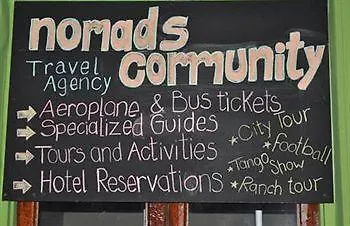 nomads
Travel Agency
community
Aeroplane & Bus tickets
Specialized Guides
Tours and Activities
Hotel Reservations
* City Tour
* Football
* Tango Show
* Ranch tour